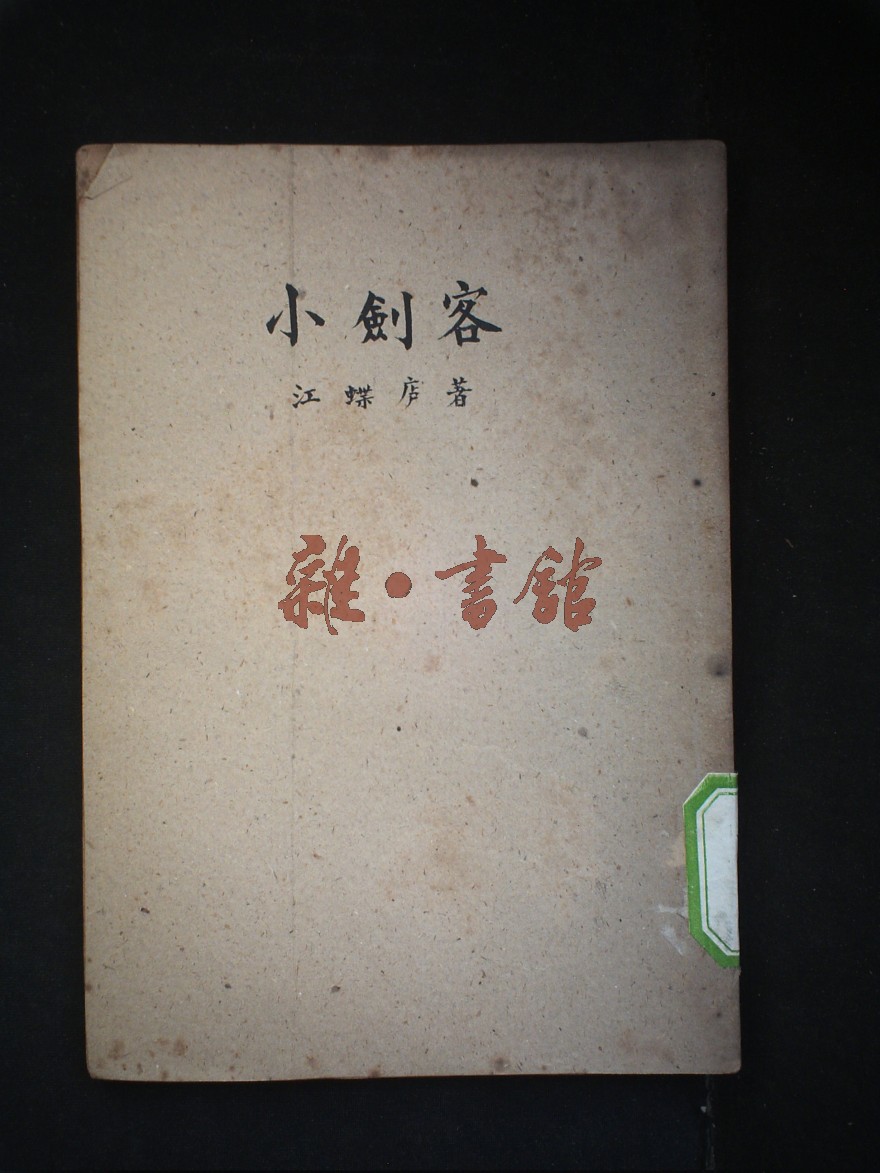 小劍客
江蝶庐著
雜•書舘